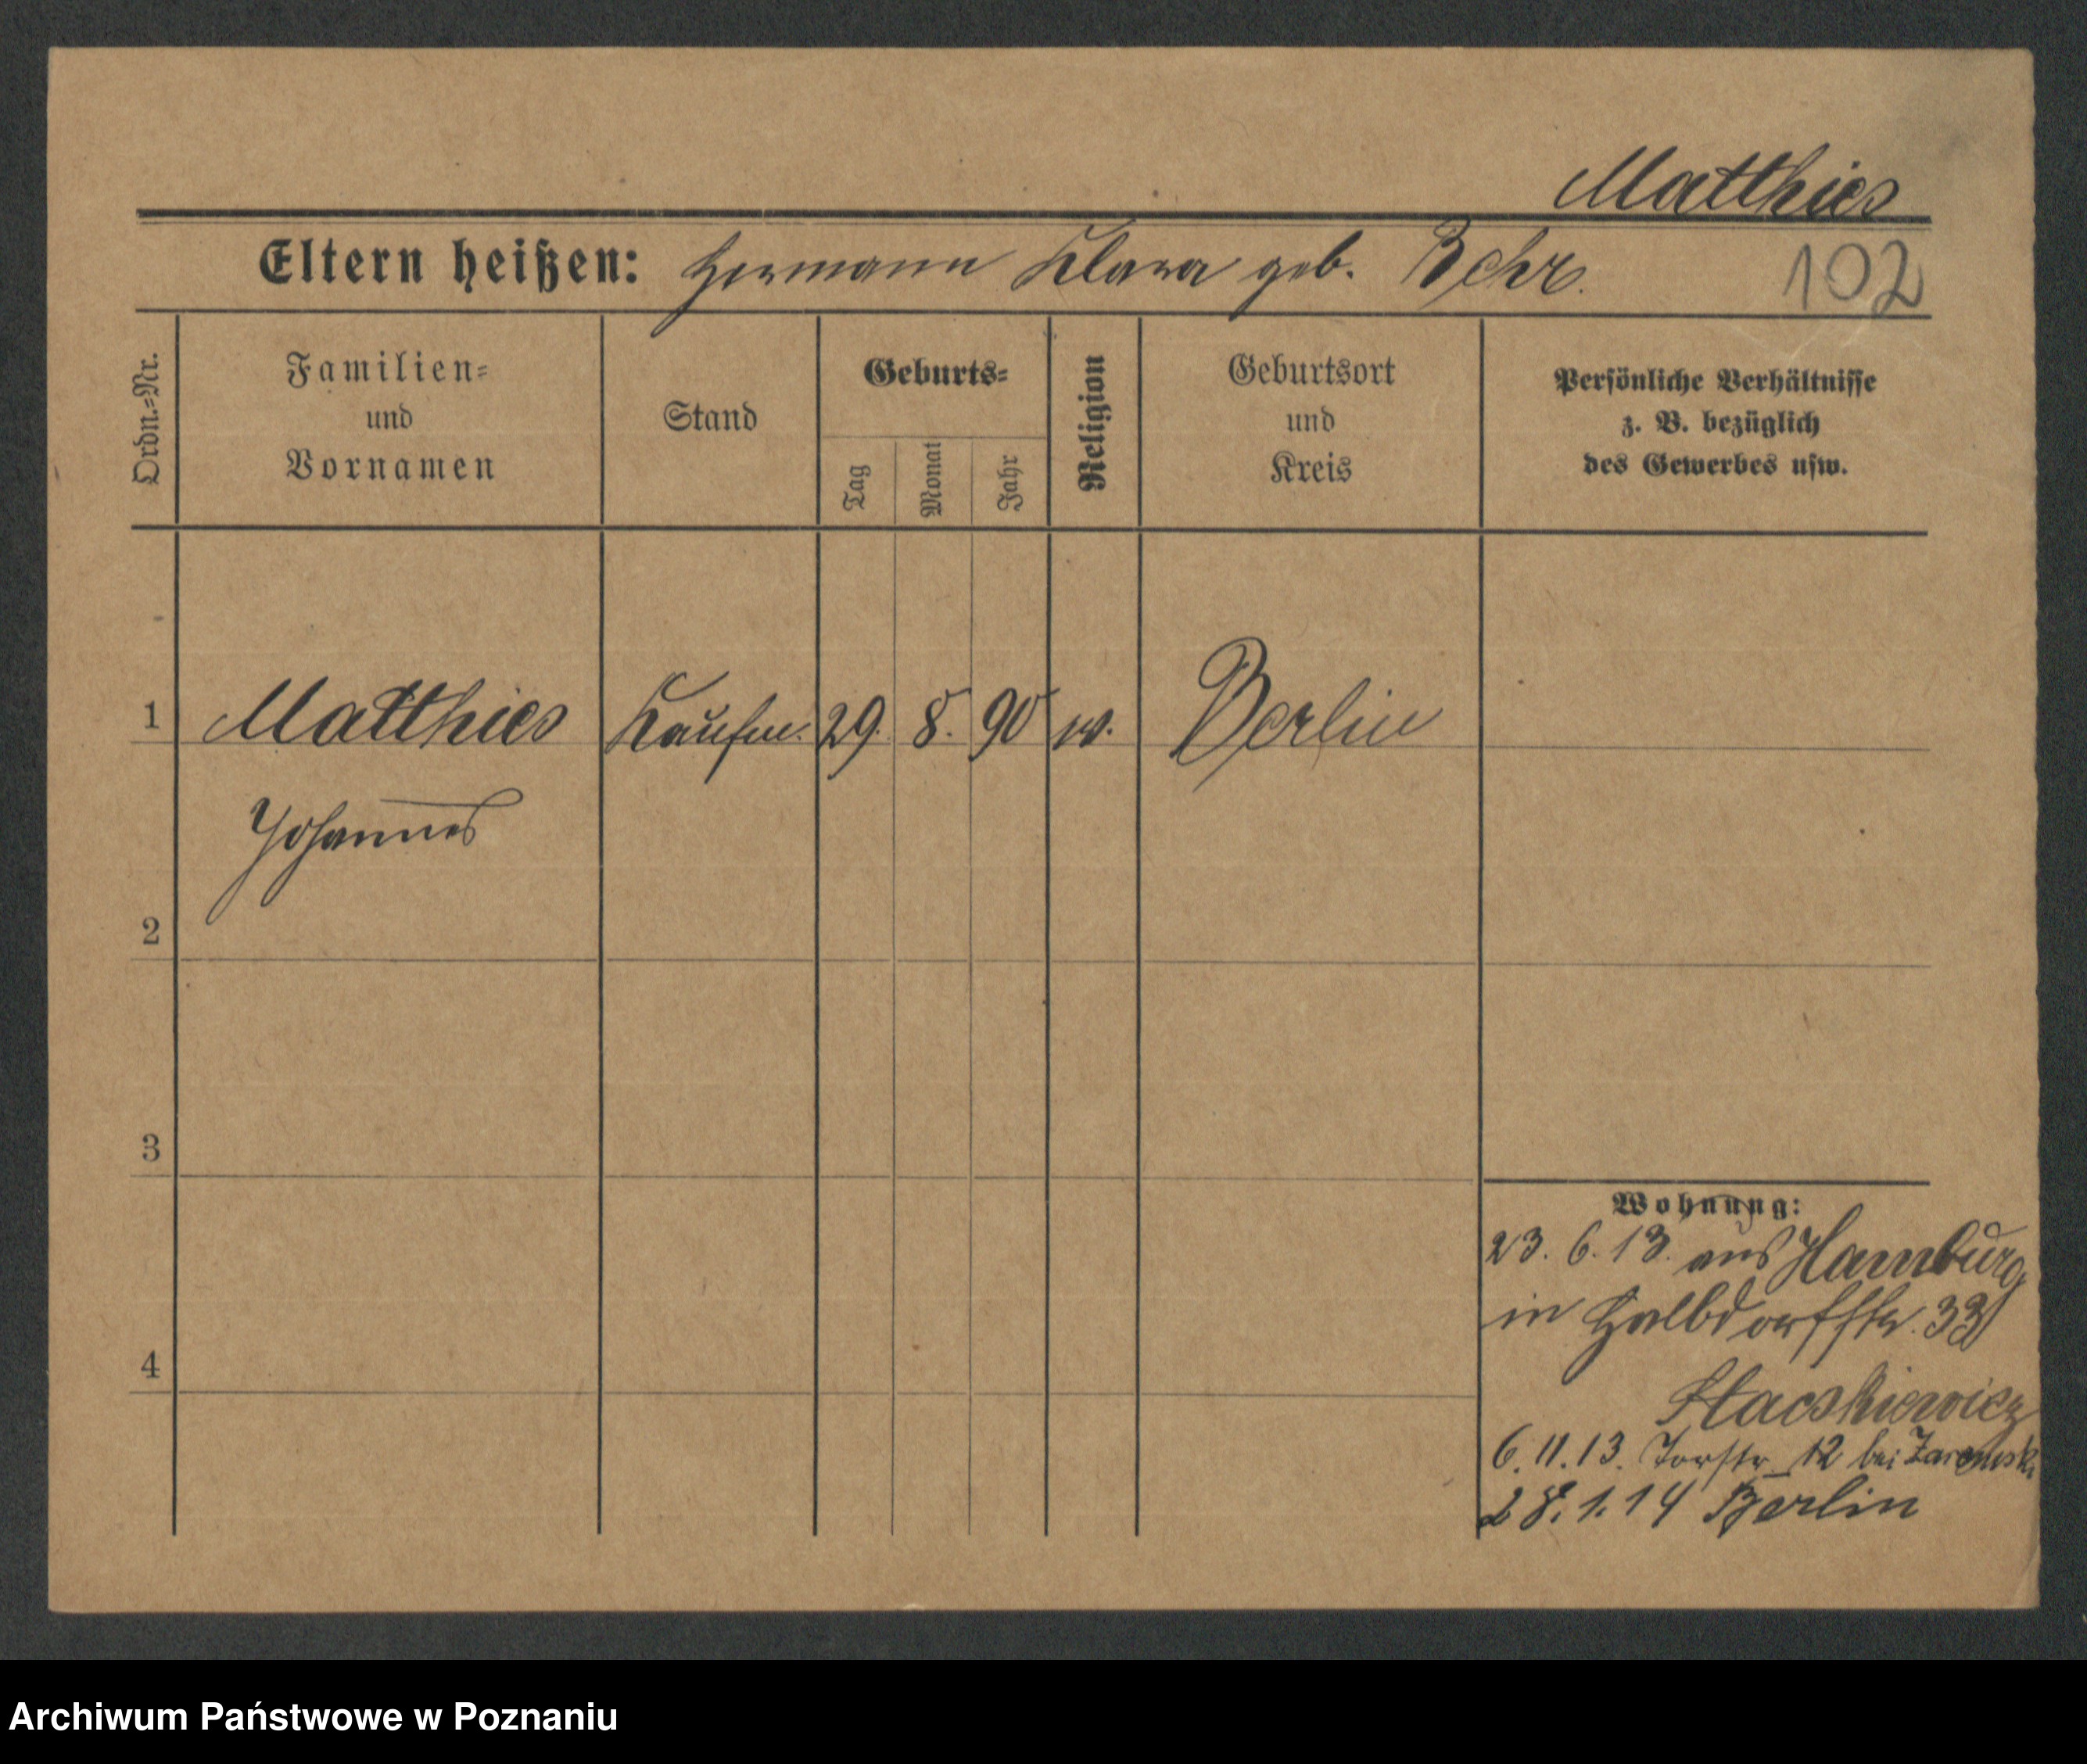 Matthies
Eltern heißen: Hermann Klara geb. Behr.
102
Ordn.-Nr.
Familien-
und
Vornamen
Stand
Geburts-
Tag
Monat
Jahr
Religion
Geburtsort
und
Kreis
Persönliche Verhältnisse
z. B. bezüglich
des Gewerbes usw.
1 Matthies Kaufm. 29. 8. 90 Berlin
Johannes
2
3
4
Wohnung:
23. 6. 13. aus Hamburg
in Halbdorfstr. 33
6. 11. 13. Torstr. 12 bei
28. 1. 14 Berlin
Archiwum Państwowe w Poznaniu